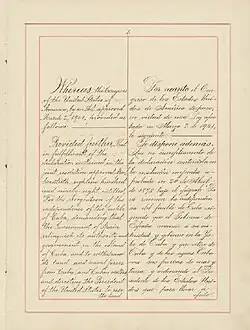 Whereas the Congress
of the United States of
America, by an Act approved
March 2, 1901, provided as
follows:
Provided further, That
in fulfillment of the
declaration contained in the
joint resolution approved April
twentieth, eighteen hundred
and ninety eight, entitled
"For the recognition of the
independence of the people
of Cuba, demanding that
the Government of Spain
relinquish its authority and
government in the island
of Cuba, and to withdraw
its land and naval forces
from Cuba and Cuban waters,
and directing the President
of the United States to use
the land
Por cuanto el Con-
greso de los Estados Uni-
dos de America dispuso,
en virtud de una Ley apro-
bada en Marzo 2 de 1901,
lo siguiente:
Se dispone además,
Que en cumplimiento de
la declaración contenida en
la resolución conjunta a-
probada en 20 de Abril
de 1898 bajo el epígrafe "Pa-
ra reconocer la independen-
cia del pueblo de Cuba exi-
giendo que el Gobierno de
España renuncie a su au-
toridad y gobierno en la Is-
la de Cuba y que retire de
Cuba y de las aguas cuba-
nas sus fuerzas de mar y
tierra, y ordenando al Pre-
sidente de los Estados Uni-
dos que para llevar á
efecto